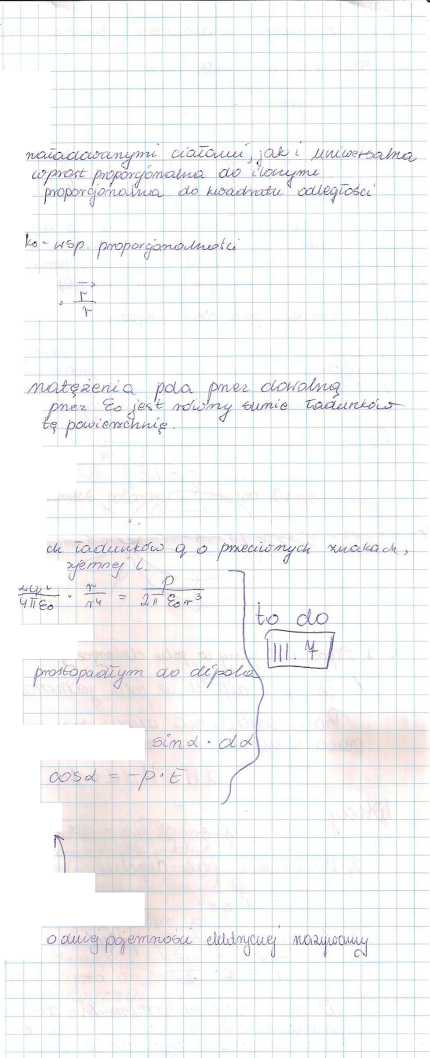 naładowanymi ciałami, jak i uniwersalna
wprost proporcjonalna do iloczynu
proporcjonalna do kwadratu odległości
k₀ - wsp. proporcjonalności
r⃗
r
natężenia pola przez dowolną
przez ε₀ jest równy sumie ładunków
tę powierzchnię.
ch ładunków q o przeciwnych znakach,
zjemnej l.
4πε₀ · r / r⁴ = p / 2π ε₀ r³
to do
III. 7
prostopadłym do dipola
sinα · dα
cosα = -p · E
odnieg pojemności elektrycznej nazywamy